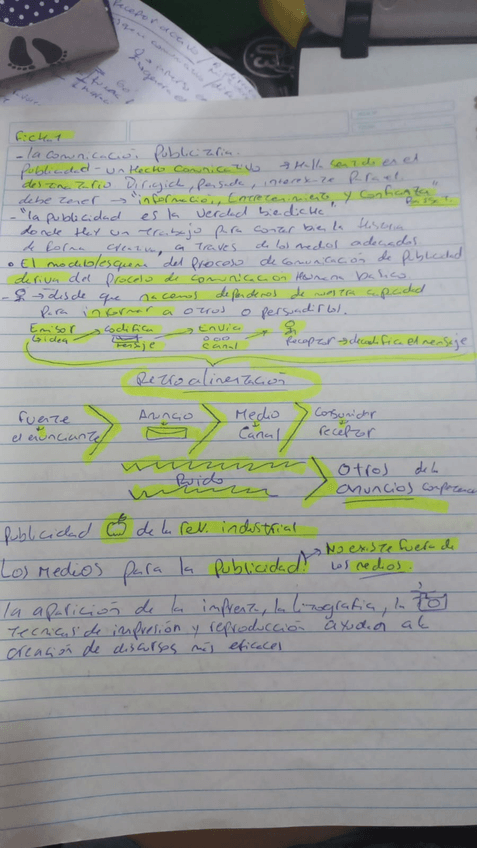 Ficha 1
- La comunicación Publicitaria.
Publicidad - un Hecho comunicativo → Halla sentido en el
destinatario Dirigida, Pensada, interesante Para el
debe tener → "información, Entretenimiento y confianza"
- "la publicidad es la verdad bien dicha"
donde Hay un Trabajo para contar bien la Historia
de forma creativa, a través de los medios adecuados
• El modelo/esquema del Proceso de comunicación de Publicidad
deriva del Proceso de comunicación Humana básico
- → desde que nacemos dependemos de nuestra capacidad
Para informar a otros o persuadirlos.
Emisor → codifica → Envía →
la idea mensaje canal Receptor → decodifica el mensaje
Retroalimentación
Fuente Anuncio Medio Consumidor
el anunciante Canal receptor
Ruido
Otros de la
anuncios competencia
Publicidad de la rev. industrial
Los Medios para la Publicidad → No existe fuera de
los medios.
la aparición de la imprenta, la litografía, la
Tecnicas de impresión y reproducción ayudan a la
creación de discursos más eficaces